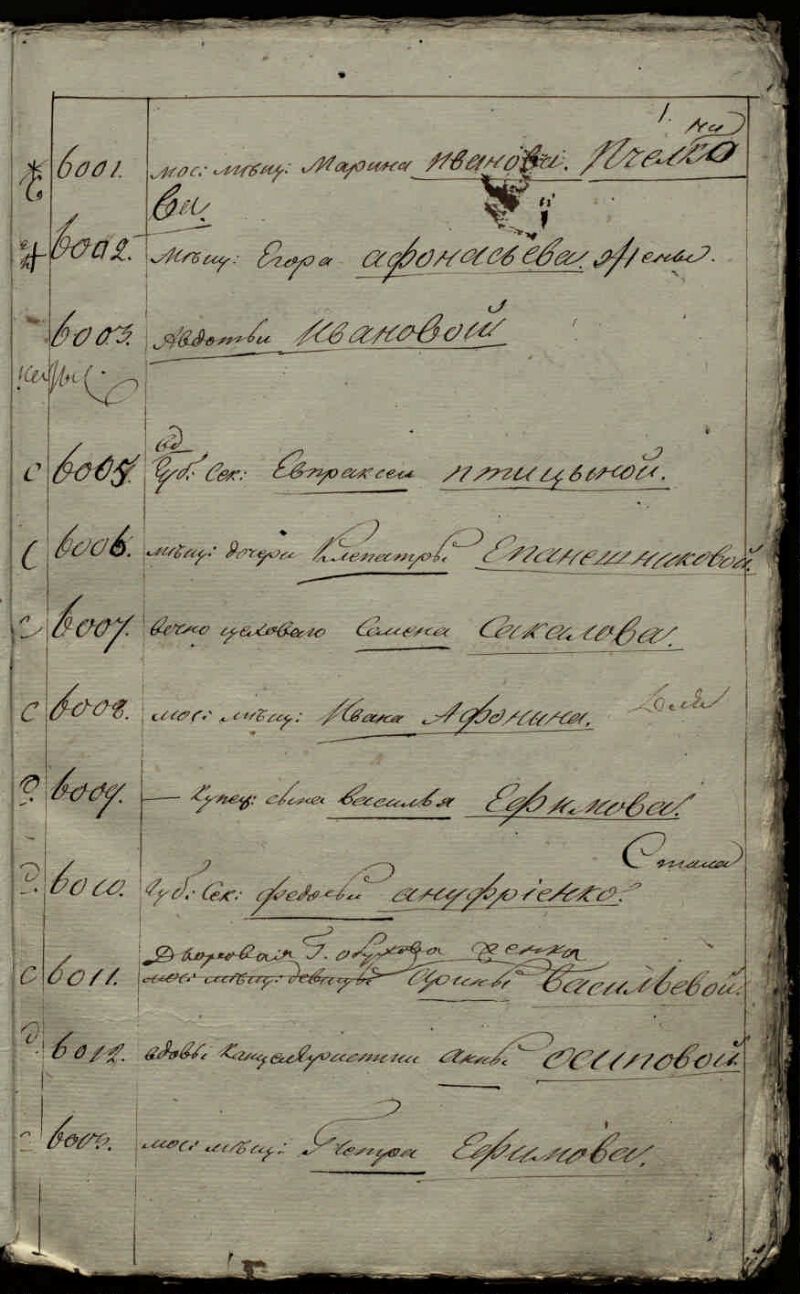 1.
6001. мос: мѣщ: Марина Иванови. Пчелко
ва.
6002. Мѣщ: Егора афонасьева. жены.
6003. Авдотьи Ивановой
вд
6005. Губ: Сек: Евпраксеи птицыной.
6006. мѣщ: дочери Клепатры Епанешниковой
6007. вечно цеховаго Семена Сакалова.
6008. мос: мѣщ: Ивана Афонина.
6009. — Купец: сына василья Ефимова.
6010. Губ: Сек: федосьи ануфрiенко.
Дворовая Г. обухова женка
6011. мос: мѣщ: девицы Арины Васильевой.
6012. вдовы Канцеляристши аны осиповой
мос: мѣщ: Петра Ефимова.